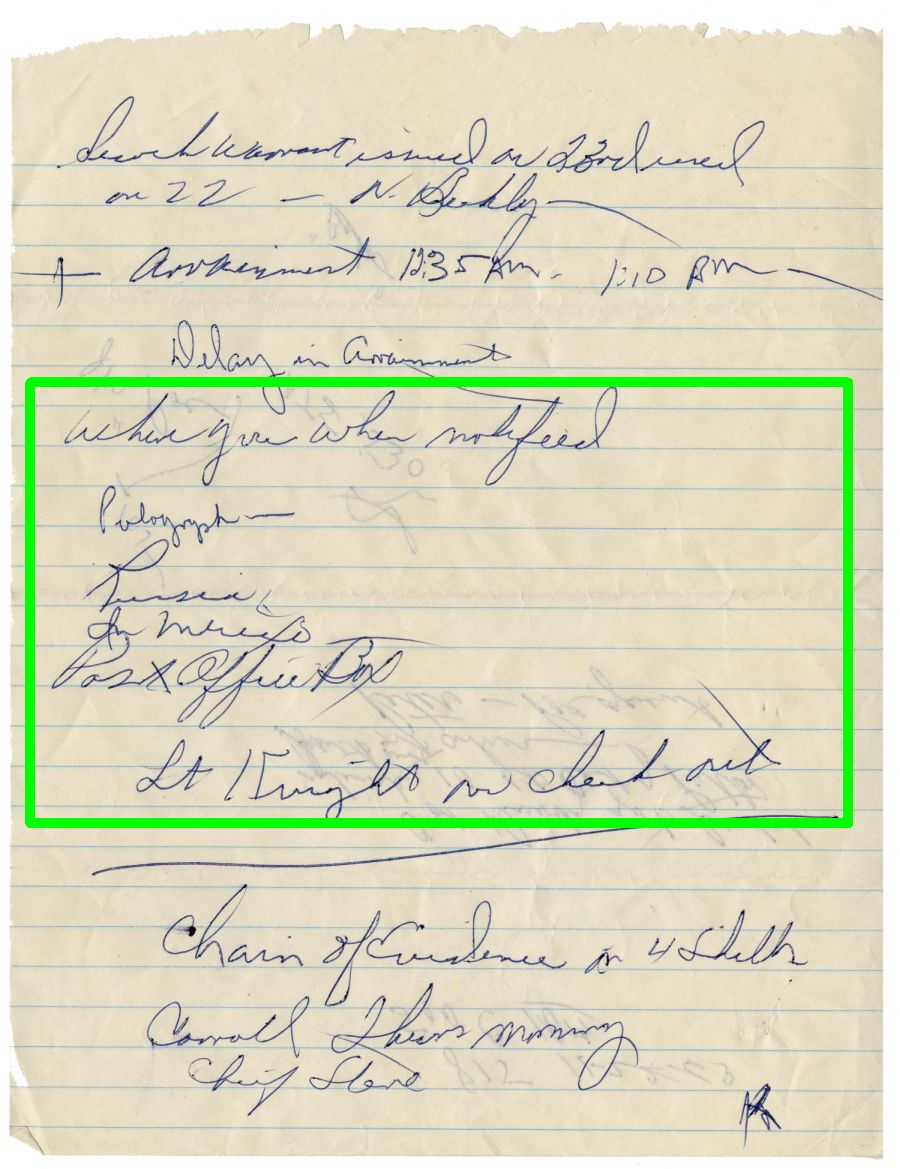 Search Warrant issued on 23rd used
on 22 — N. Beckley
Arraignment 12:35 Am. 1:10 Am
Delay in Arraignment
Where you when notifeed
Pologryph —
Russia
In Mexico
Post Office Box
Lt Knight on check out
Chain of Evidence on 4 Shells
Carroll Thurs Morning
Chief Steve